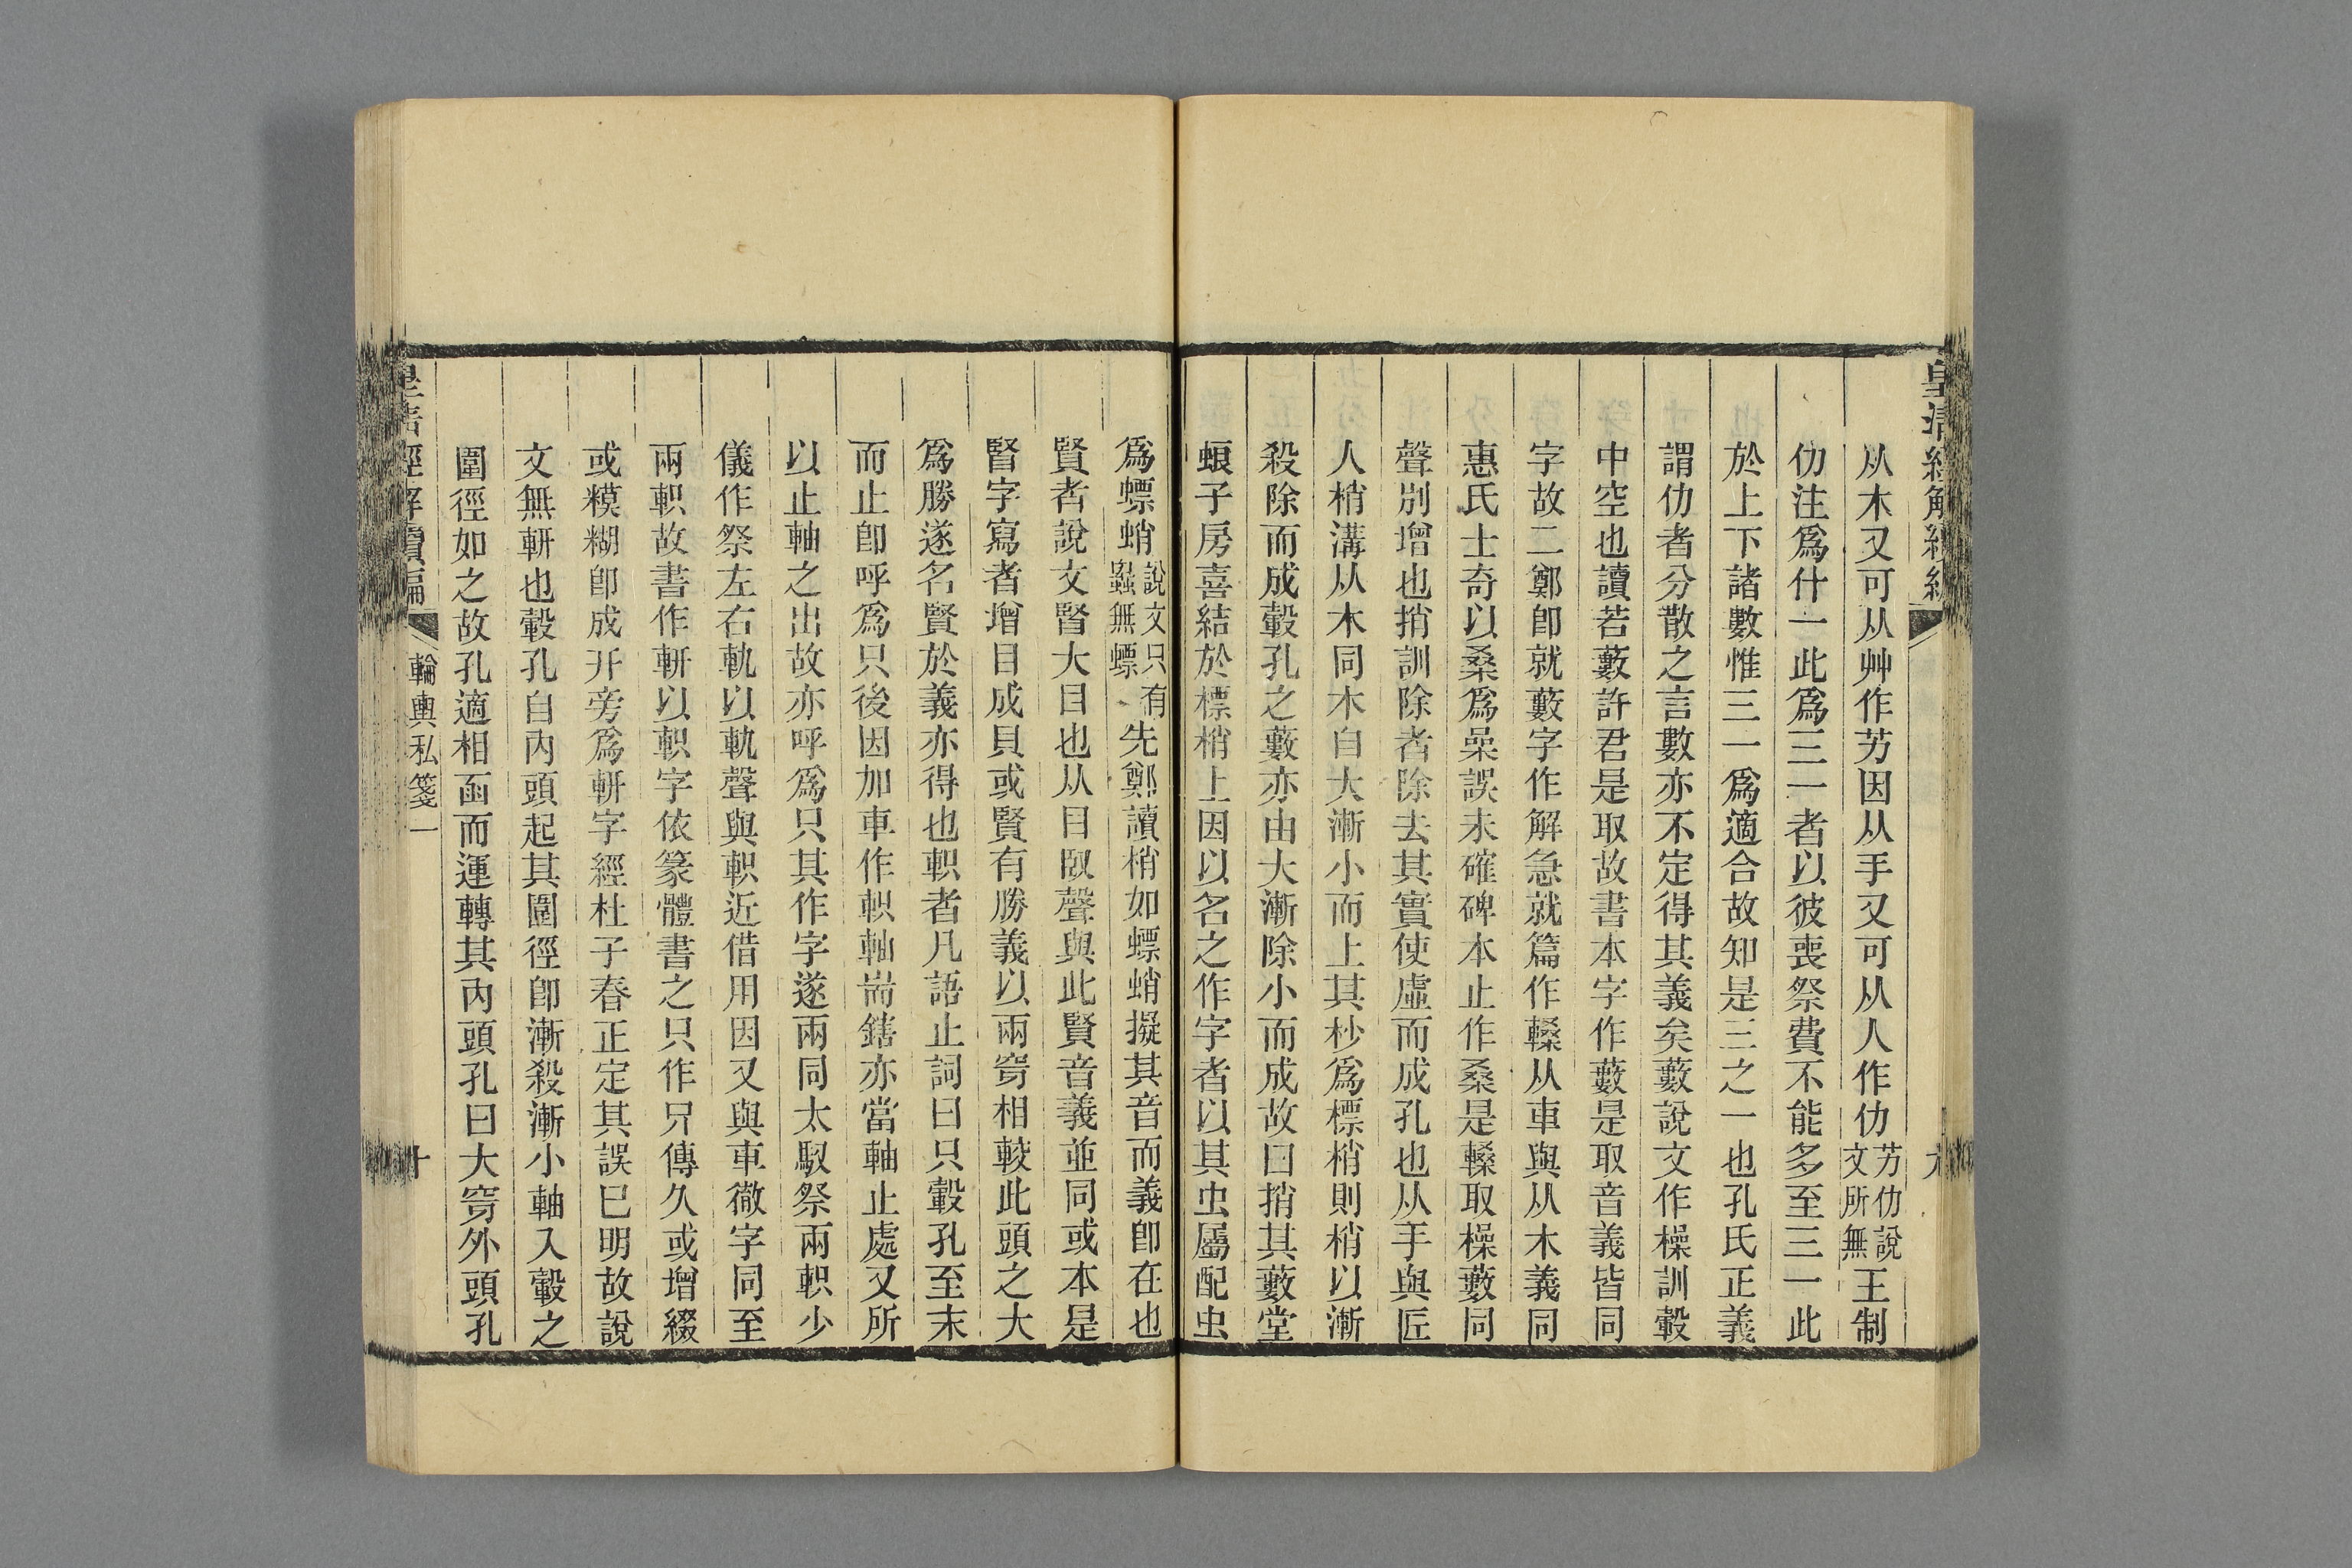 皇清經解續編
从木又可从艸作艻因从手又可从人作仂艻仂說文所無王制
仂注爲什一此爲三一者以彼喪祭費不能多至三一此
於上下諸數惟三一爲適合故知是三之一也孔氏正義
謂仂者分散之言數亦不定得其義矣藪說文作橾訓轂
中空也讀若藪許君是取故書本字作藪是取音義皆同
字故二鄭卽就藪字作解急就篇作轑从車與从木義同
惠氏士奇以桑爲喿誤未確碑本止作桑是轑取橾藪同
聲別增也捎訓除者除去其實使虛而成孔也从手與匠
人梢溝从木同木自大漸小而上其杪爲標梢則梢以漸
殺除而成轂孔之藪亦由大漸除小而成故曰捎其藪堂
蜋子房喜結於標梢上因以名之作字者以其虫屬配虫
爲螵蛸說文只有蟲無螵先鄭讀梢如螵蛸擬其音而義卽在也
賢者說文䝨大目也从目臤聲與此賢音義並同或本是
䝨字寫者增目成貝或賢有勝義以兩穿相較此頭之大
爲勝遂名賢於義亦得也軹者凡語止詞曰只轂孔至末
而止卽呼爲只後因加車作軹軸耑鎋亦當軸止處又所
以止軸之出故亦呼爲只其作字遂兩同太馭祭兩軹少
儀作祭左右軌以軌聲與軹近借用因又與車徹字同至
兩軹故書作軿以軹字依篆體書之只作㕣傳久或增綴
或糢糊卽成幵旁爲軿字經杜子春正定其誤已明故說
文無軿也轂孔自內頭起其圍徑卽漸殺漸小軸入轂之
圍徑如之故孔適相函而運轉其內頭孔曰大穿外頭孔
皇清經解續編
輪輿私箋一
十